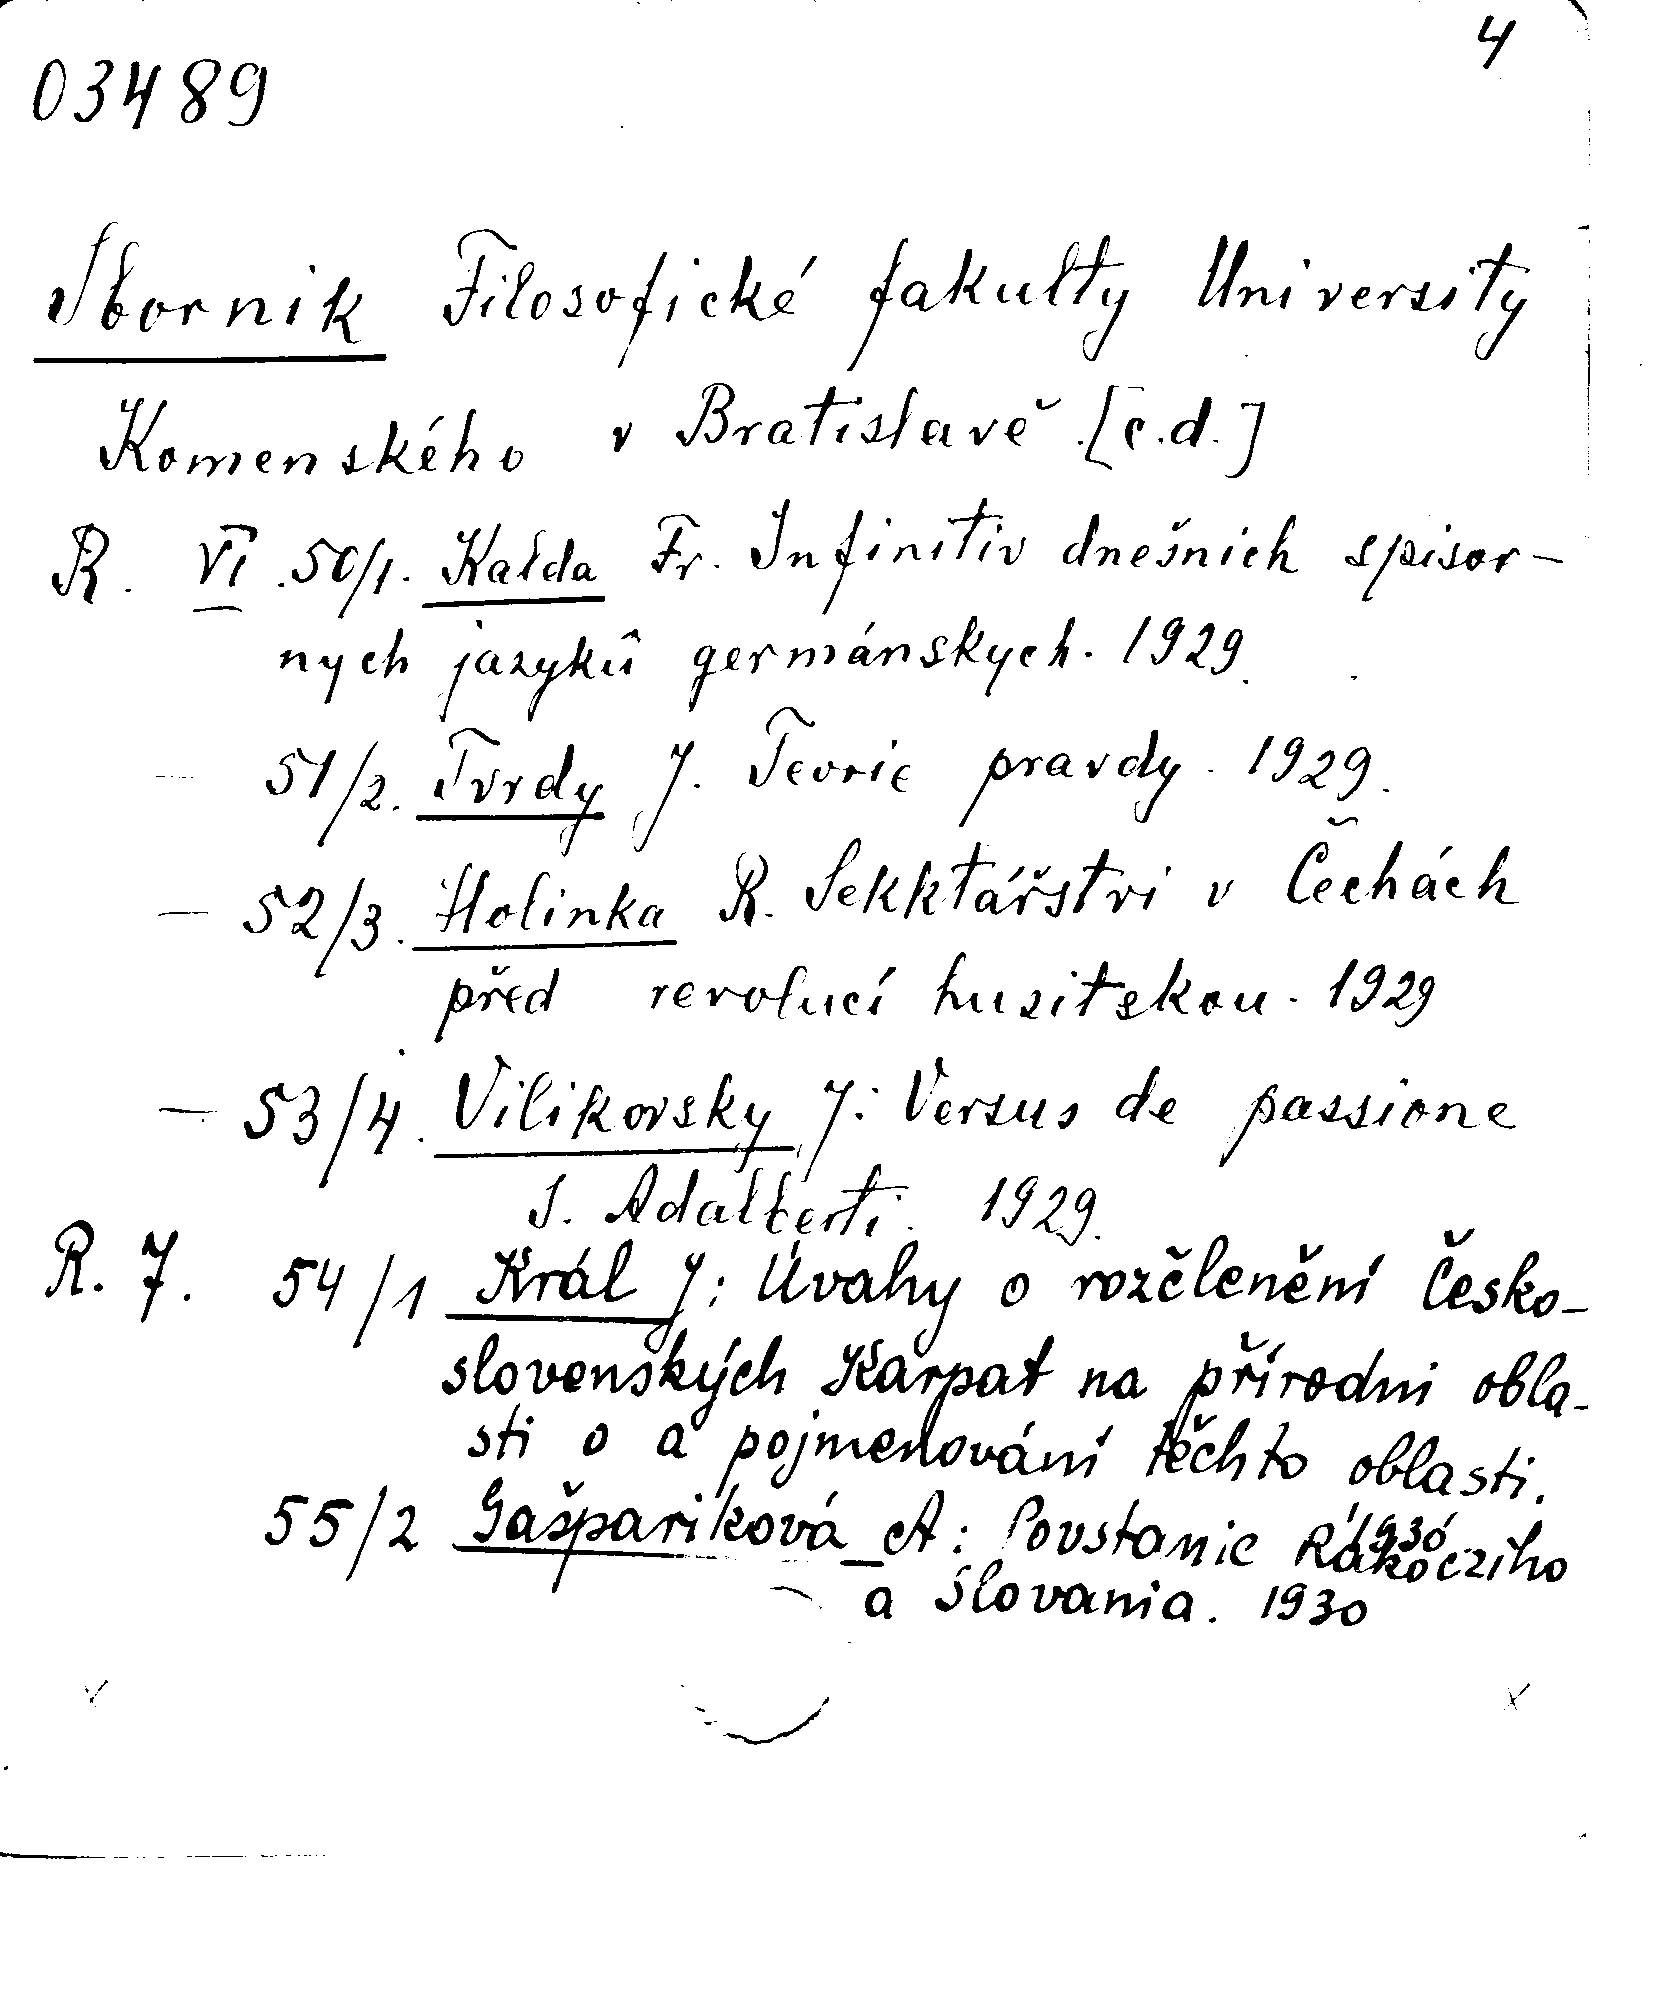 4
03489
Sbornik Filosofické fakulty University
Komenského v Bratislavě [c.d.]
R. VI. 50/1. Kalda Fr. Infinitiv dnešnich spisov-
nych jazykû germánskych. 1929.
— 51/2. Tvrdy J. Teorie pravdy. 1929.
— 52/3. Holinka R. Sekktářstvi v Čechách
před revolucí husitskou. 1929
— 53/4. Vilikovsky J: Versus de passione
S. Adalberti. 1929.
R. 7. 54/1 Král J: Úvahy o rozčlenění Česko-
slovenských Karpat na přírodni obla-
sti o a pojmenování těchto oblasti.
1930
55/2 Gašpariková A: Povstanie Rákocziho
a Slovania. 1930